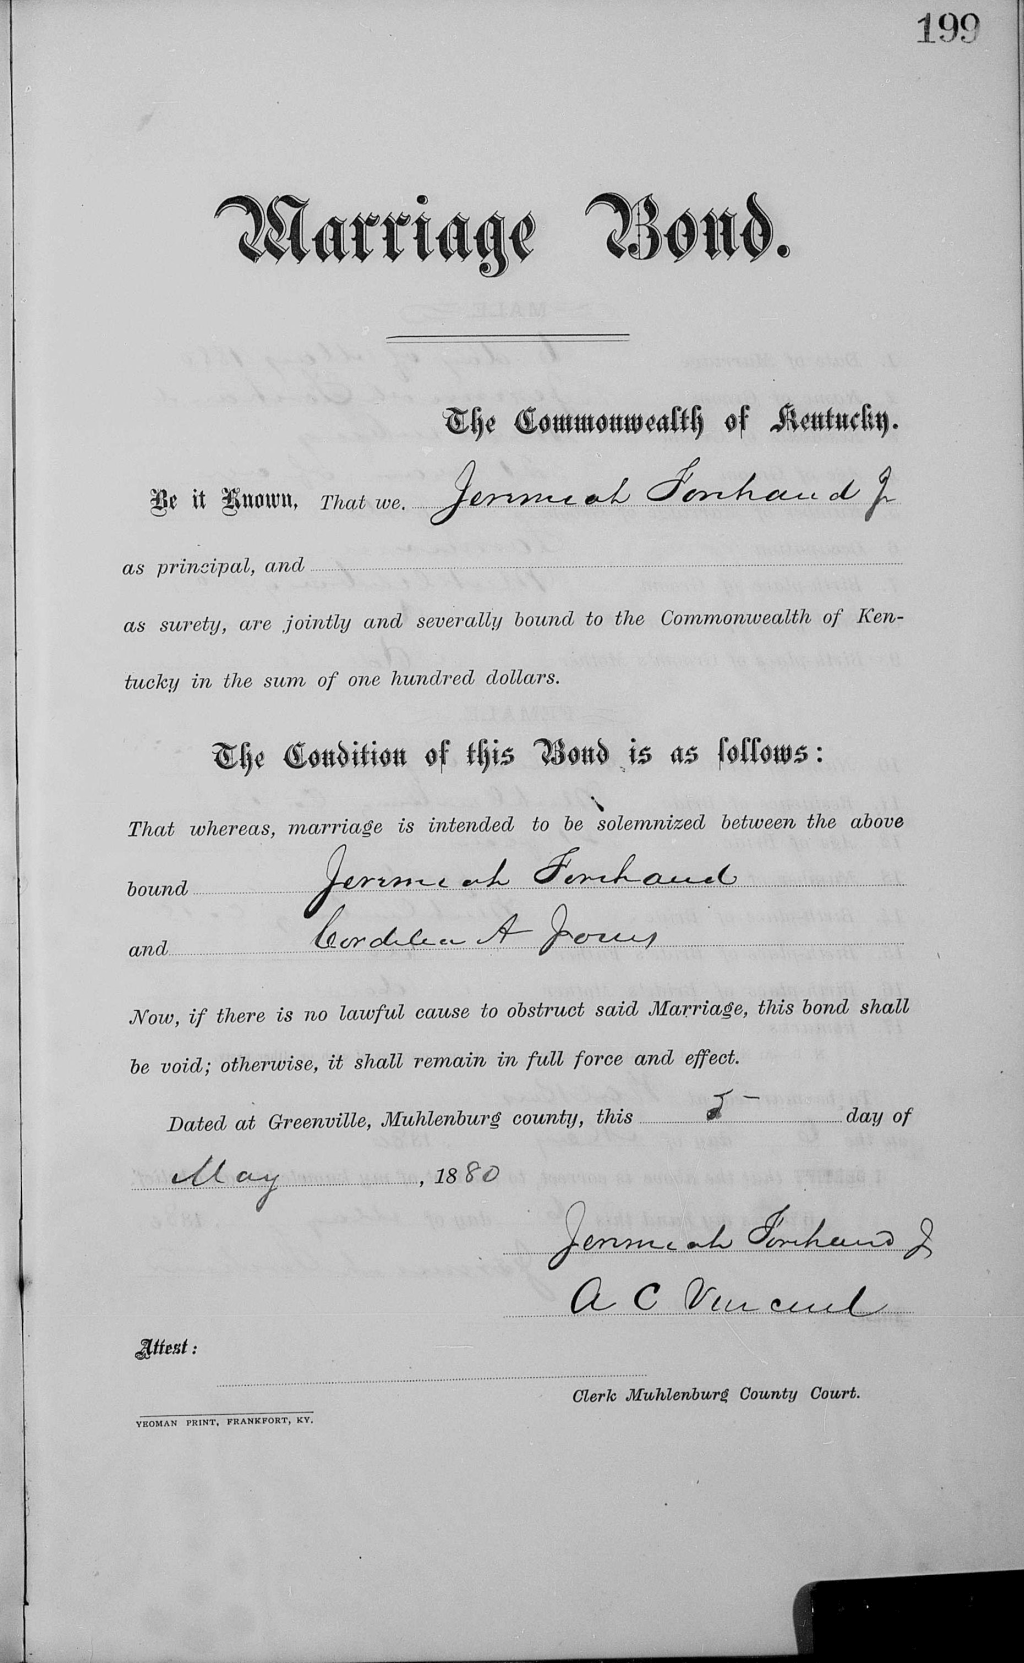 199
Marriage Bond.
The Commonwealth of Kentucky.
Be it Known, That we, Jeremiah Forehand Jr
as principal, and
as surety, are jointly and severally bound to the Commonwealth of Ken-
tucky in the sum of one hundred dollars.
The Condition of this Bond is as follows:
That whereas, marriage is intended to be solemnized between the above
bound Jeremiah Forehand
and Cordelia A Jones
Now, if there is no lawful cause to obstruct said Marriage, this bond shall
be void; otherwise, it shall remain in full force and effect.
Dated at Greenville, Muhlenburg county, this 5 day of
May, 1880
Jeremiah Forehand Jr
A C Vincent
Attest:
Clerk Muhlenburg County Court.
YEOMAN PRINT, FRANKFORT, KY.